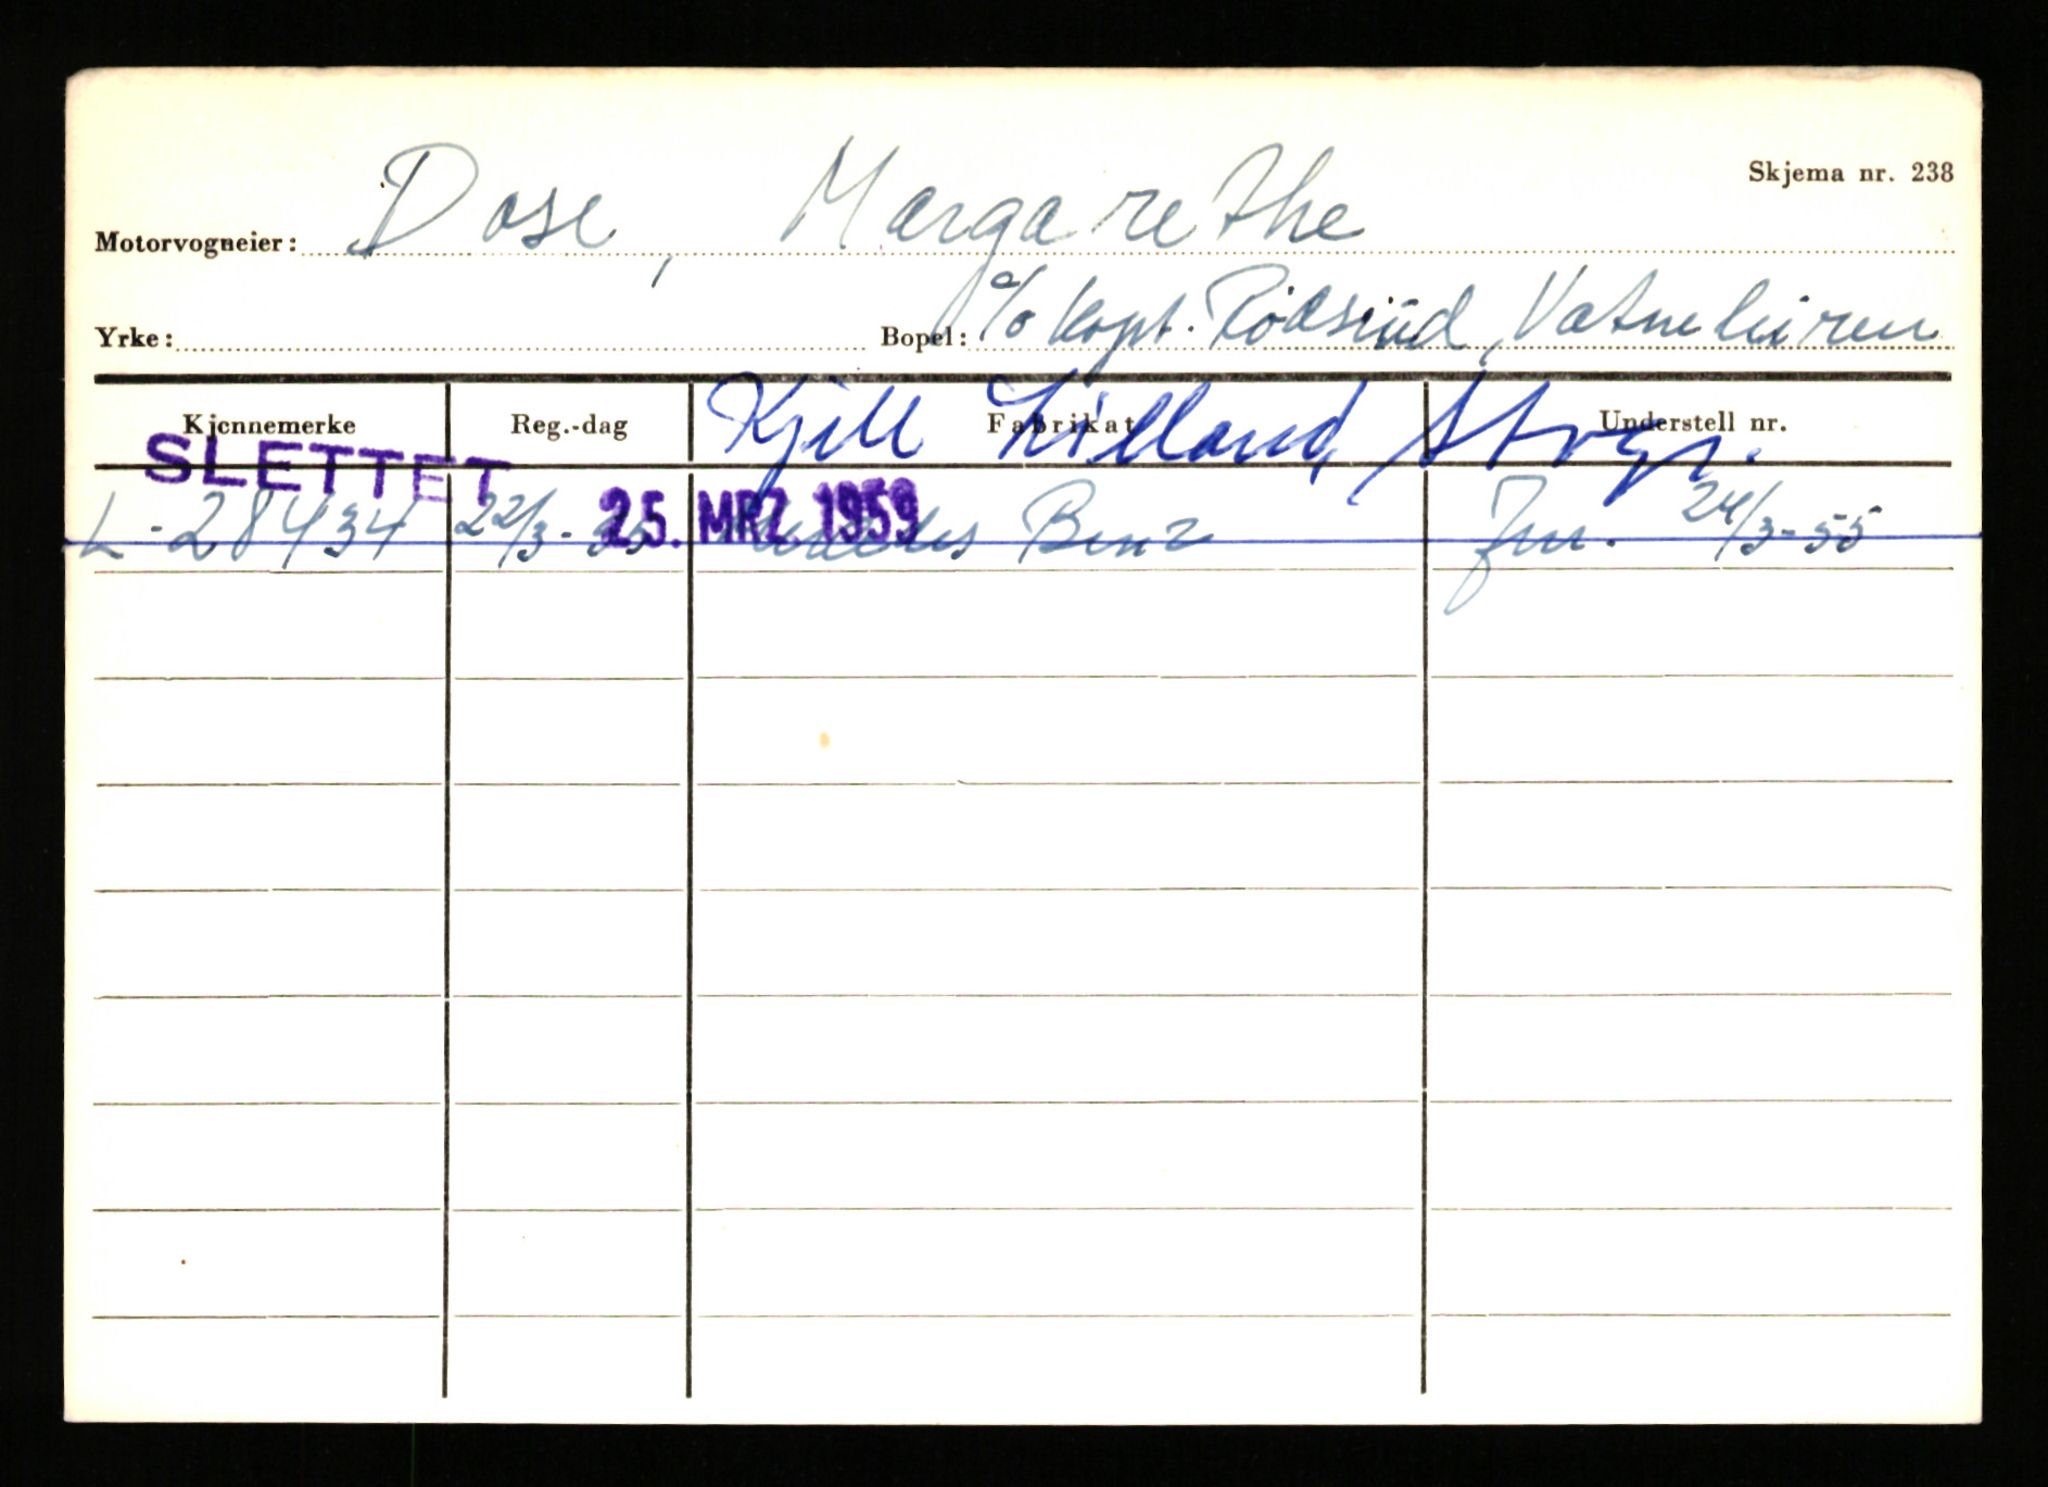 Skjema nr. 238
Motorvogneier: Dose, Margarethe
Yrke: Bopel: c/o kapt. Rödsrud, Vatneleiren
Kjennemerke Reg.-dag Fabrikat Understell nr.
Kjell Lilland, Stvgr.
SLETTET
25. MRZ. 1959
L-28434 22/3-55 Mercedes Benz 24/3-55